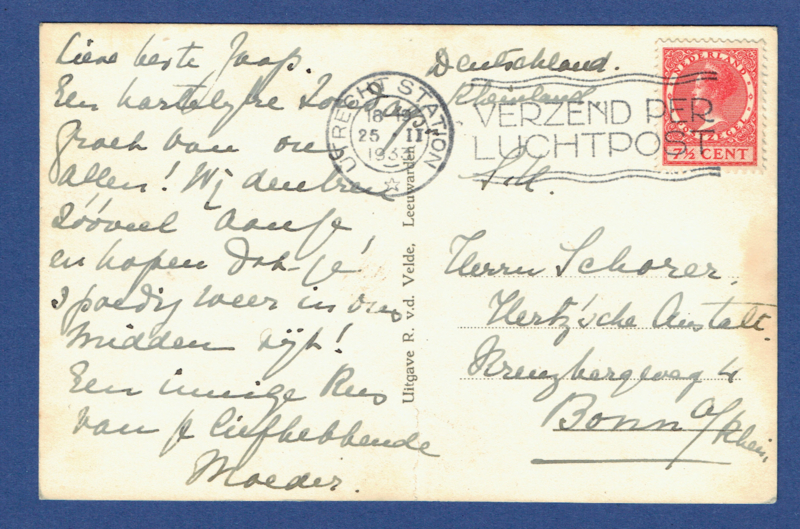 Lieve beste Jaap.
Een hartelijke Zondags
groet van ons
allen! Wij denken
zóóveel aan je,
en hopen dat je
spoedig weer in ons
midden zijt!
Een innige Kus
van je liefhebbende
Moeder.
UTRECHT STATION
18-19
25 II
1933
VERZEND PER
LUCHTPOST
NEDERLAND
7½ CENT
Uitgave R. v.d. Velde, Leeuwarden
Deutschland.
Rheinland.
Herrn Schorer,
Hertz'sche Anstalt.
Kreuzbergweg 4
Bonn a/Rhein,